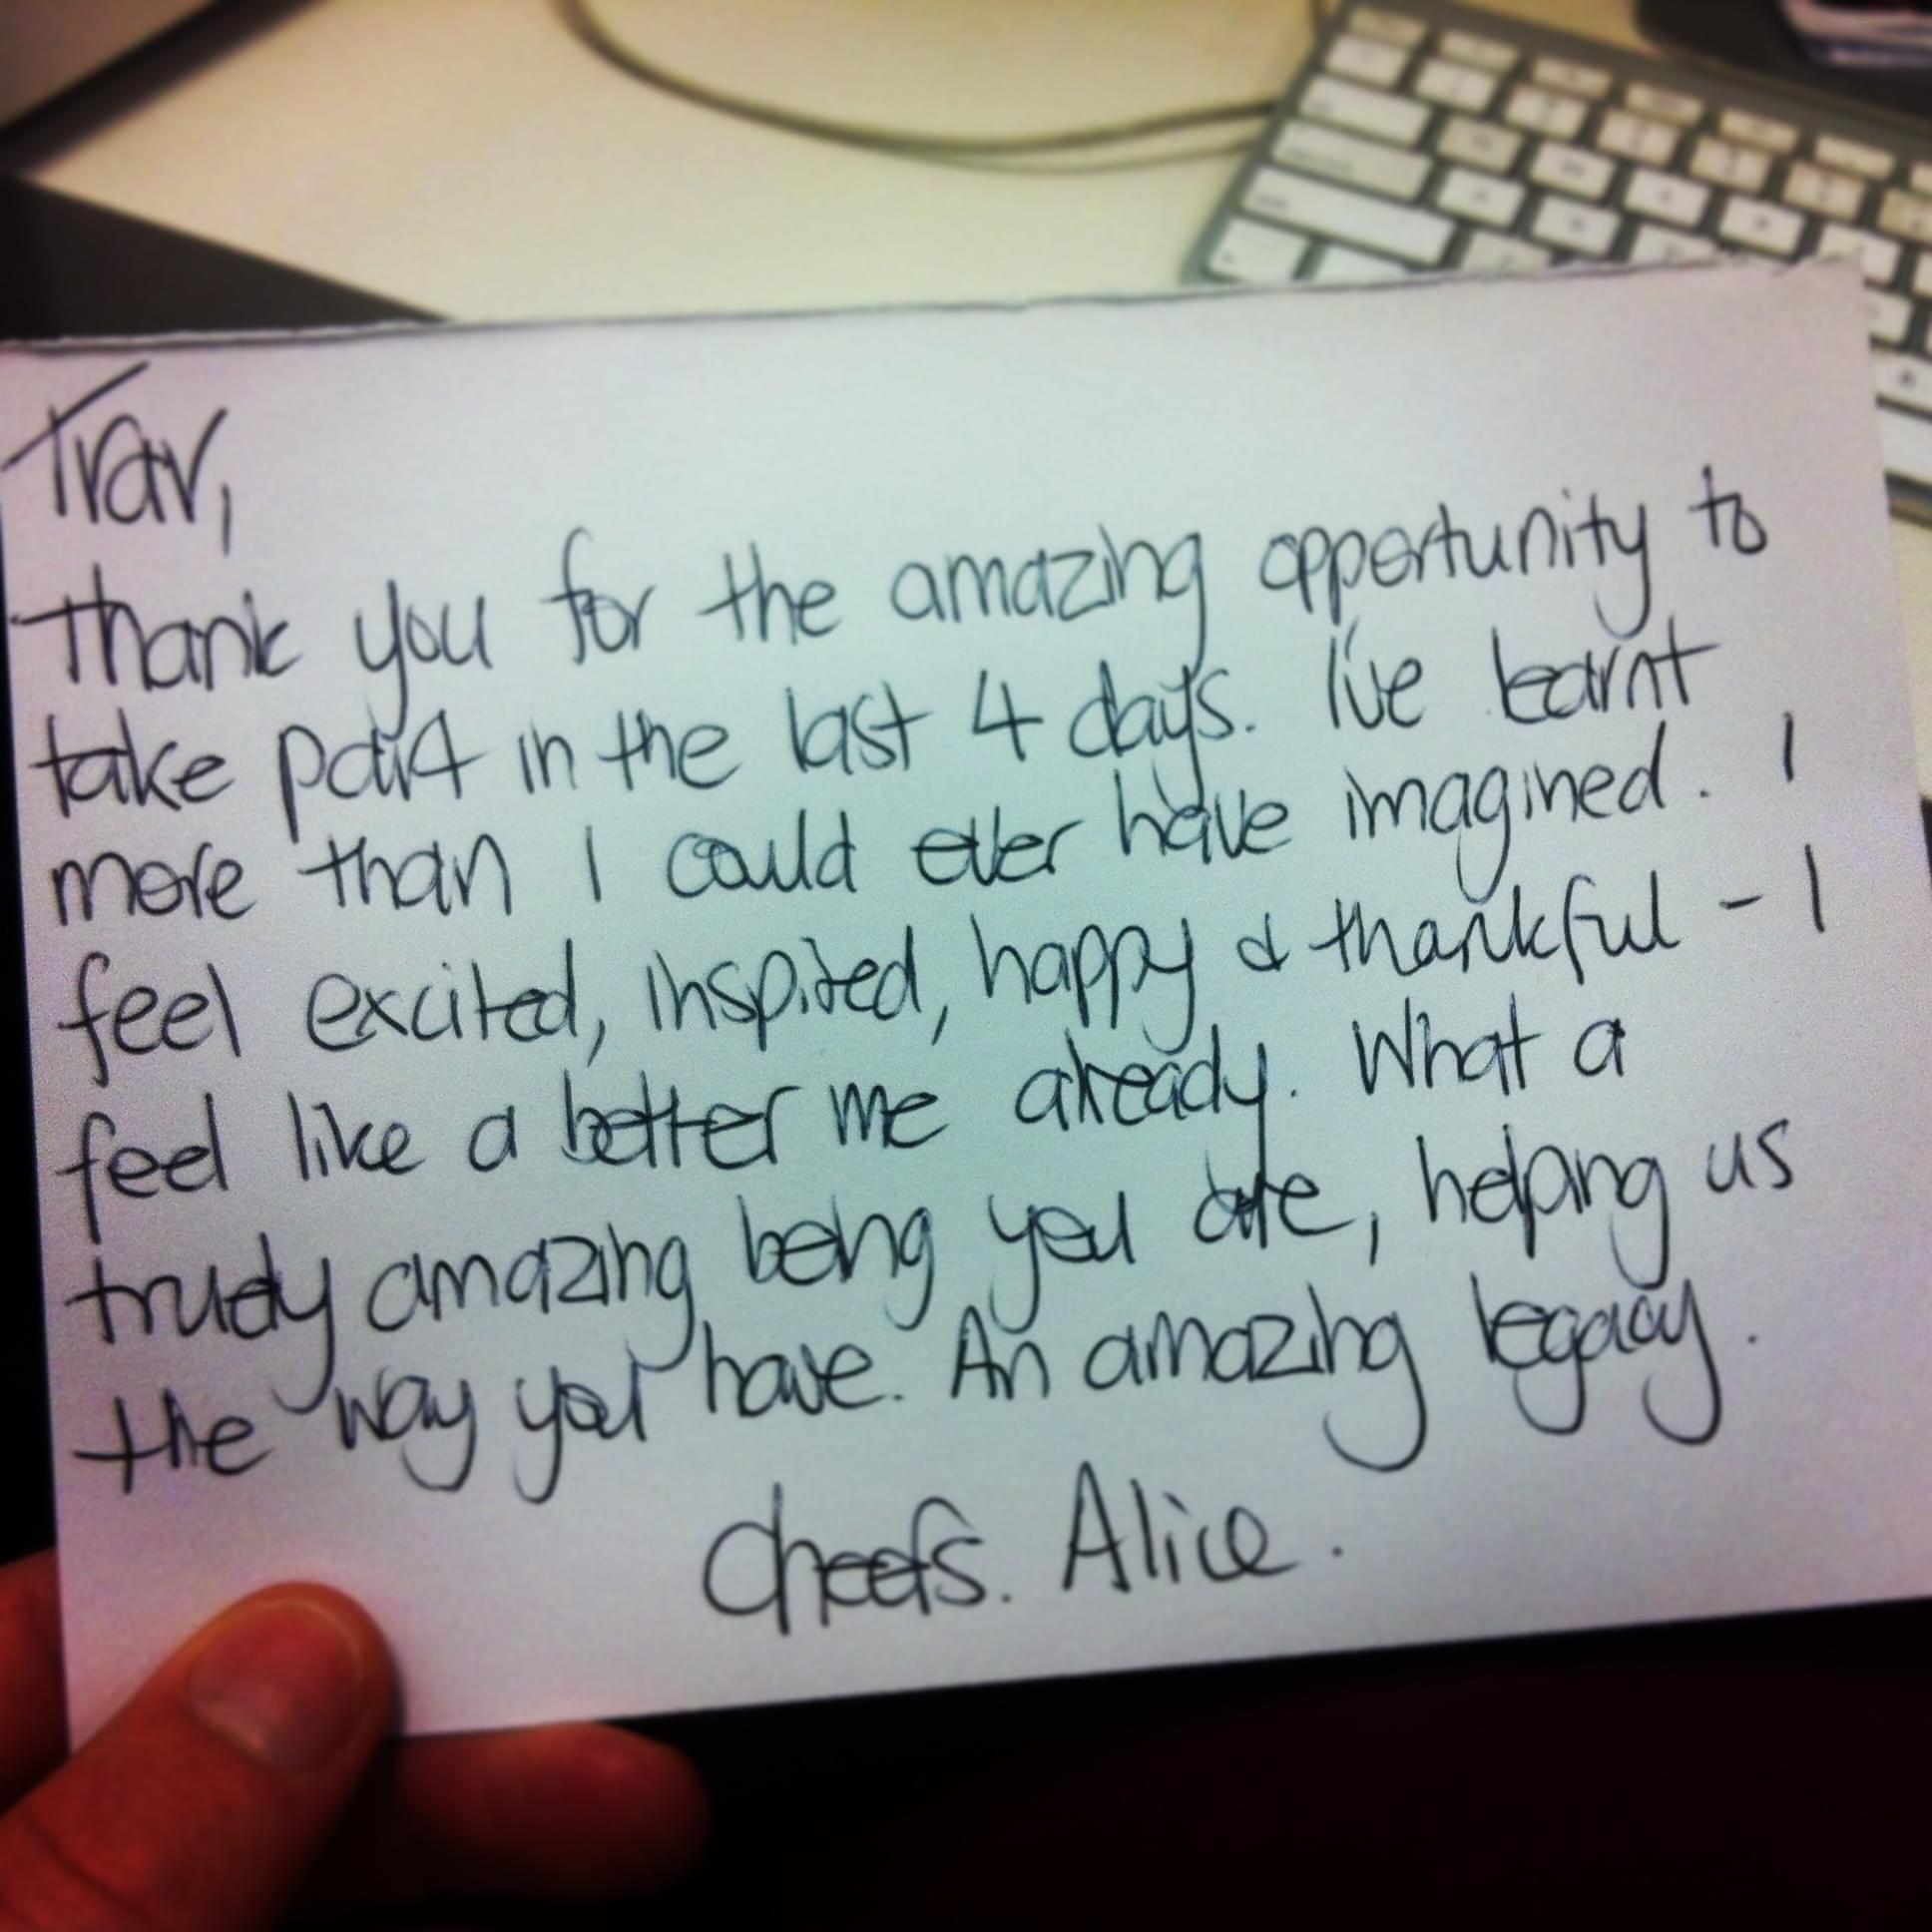 Trav,
Thank you for the amazing opportunity to
take part in the last 4 days. I've learnt
more than I could ever have imagined. I
feel excited, inspired, happy & thankful - I
feel like a better me already. What a
truely amazing being you are, helping us
the way you have. An amazing legacy.
Cheers. Alice.